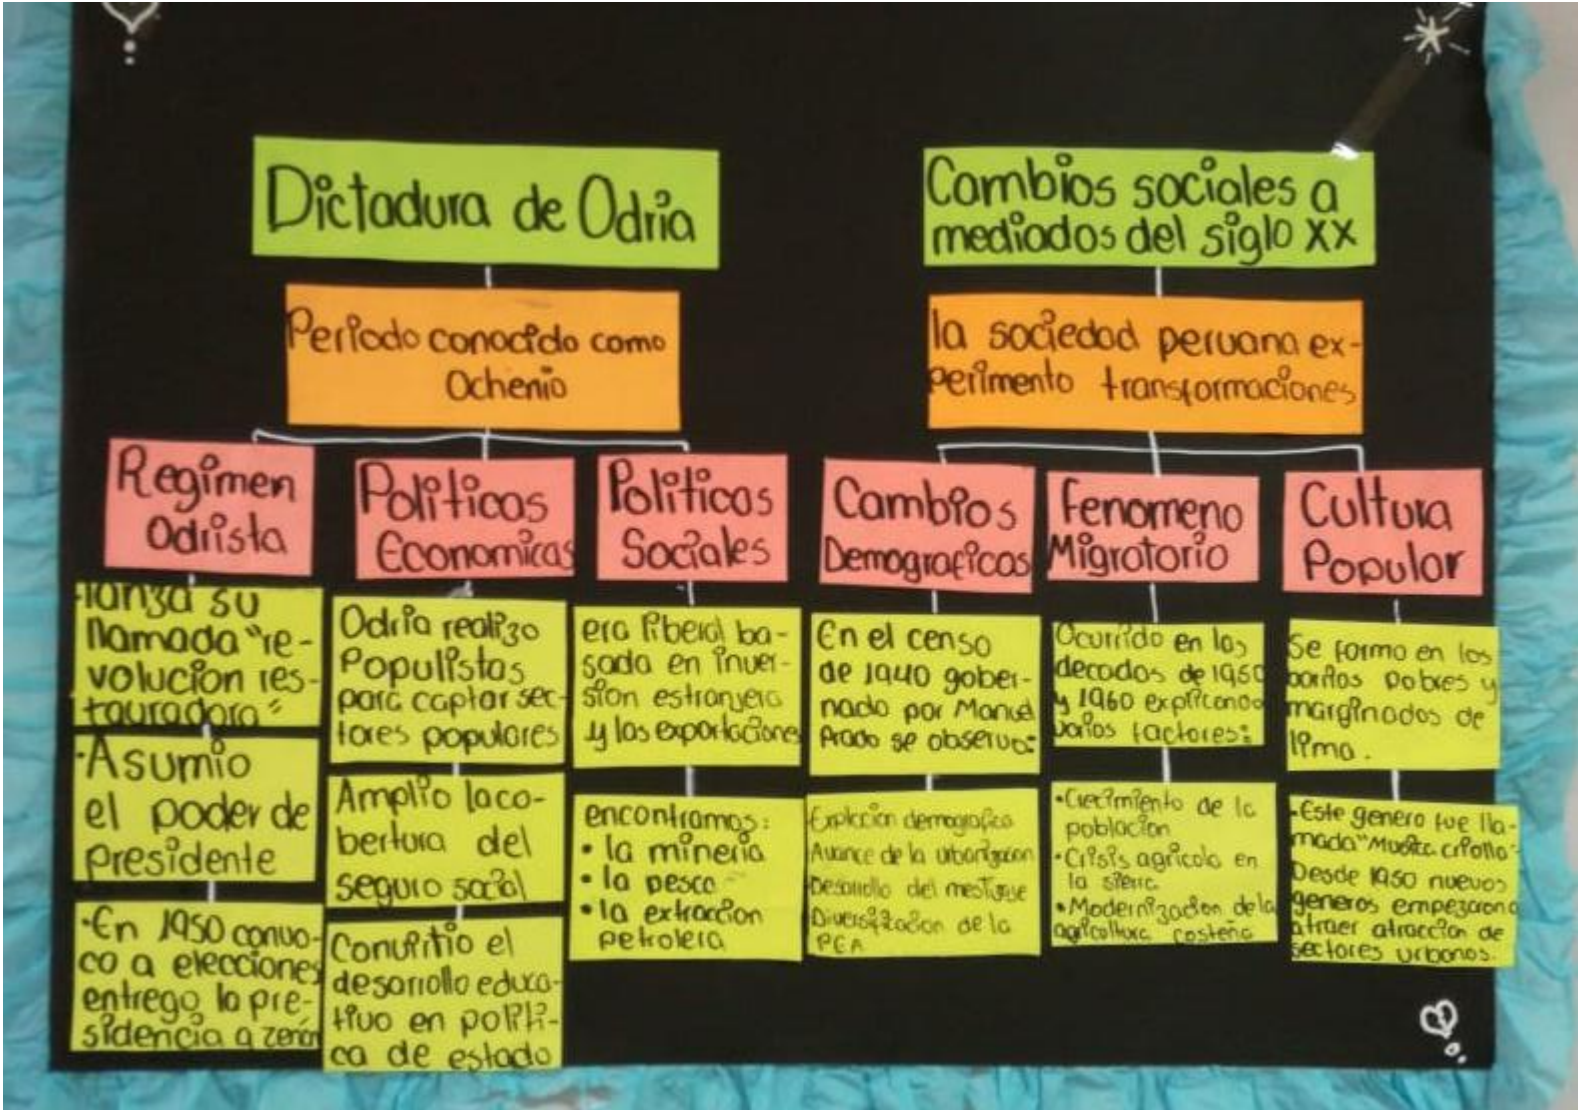 Dictadura de Odria
Periodo conocido como
Ochenio
Regimen
Odrista
lanza su
llamada "re-
volucion res-
tauradora"
•Asumio
el poder de
presidente
•En 1950 convo-
co a elecciones
entrego la pre-
sidencia a zenon
Politicas
Economicas
Odria realizo
Populistas
para captar sec-
tores populares
Amplio la co-
bertura del
seguro social
Convirtio el
desarrollo educa-
tivo en politi-
ca de estado
Politicas
Sociales
era liberal ba-
sada en inver-
sion estranjera
y las exportaciones
encontramos:
• la mineria
• la pesca
• la extraccion
petrolera
Cambios sociales a
mediados del siglo XX
la sociedad peruana ex-
perimento transformaciones
Cambios
Demograficos
En el censo
de 1940 gober-
nado por Manuel
Prado se observo:
demografica
Avance de la urbanizacion
Desarrollo del
de la
PEA
Fenomeno
Migratorio
Ocurrido en las
decadas de 1950
y 1960 explicando
varios factores:
•Crecimiento de la
poblacion
•Crisis agricola en
la sierra
•Modernizacion de la
agricultura costeña
Cultura
Popular
Se formo en los
barrios pobres y
marginados de
lima.
•Este genero fue lla-
mada "Musica criolla"
Desde 1950 nuevos
generos empezaron a
atraer atraccion de
sectores urbanos.